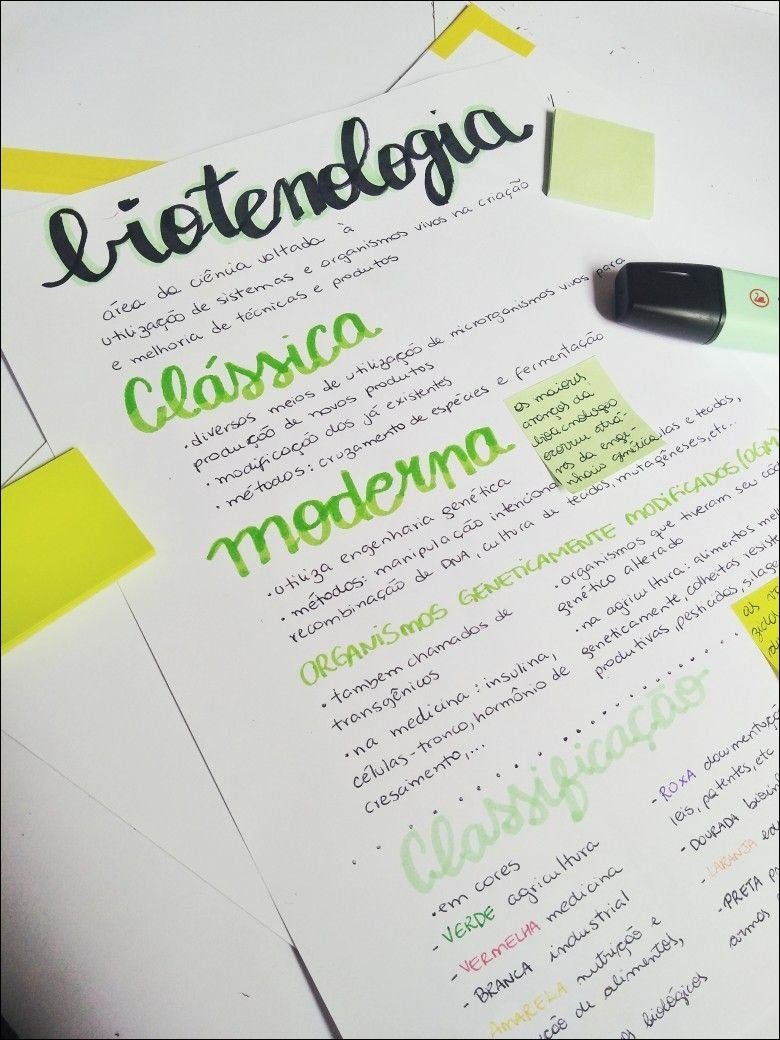 biotenologia
área da ciência voltada à
utilização de sistemas e organismos vivos na criação
e melhoria de técnicas e produtos
Clássica
• diversos meios de utilização de microrganismos vivos para
produção de novos produtos
• modificação dos já existentes
• métodos: cruzamento de espécies e fermentação
os maiores
avanços da
biotecnologia
através
da enge-
nharia genética
moderna
• utiliza engenharia genética
• métodos: manipulação intencional células e tecidos,
recombinação de DNA, cultura de tecidos, mutagêneses, etc...
ORGANISMOS GENETICAMENTE MODIFICADOS (OGM
• tambem chamados de
transgênicos
• na medicina: insulina,
células-tronco, hormônio de
cresamento,...
• organismos que tiveram seu
genético alterado
• na agricultura: alimentos
geneticamente, colheitas
produtivas, pesticidas,
as
Classificação
• em cores
- VERDE agricultura
- VERMELHA medicina
- BRANCA industrial
- AMARELA nutrição e
de alimentos,
biológicos
- ROXA
leis, patentes, etc
- DOURADA
- LARANJA
- PRETA
armas